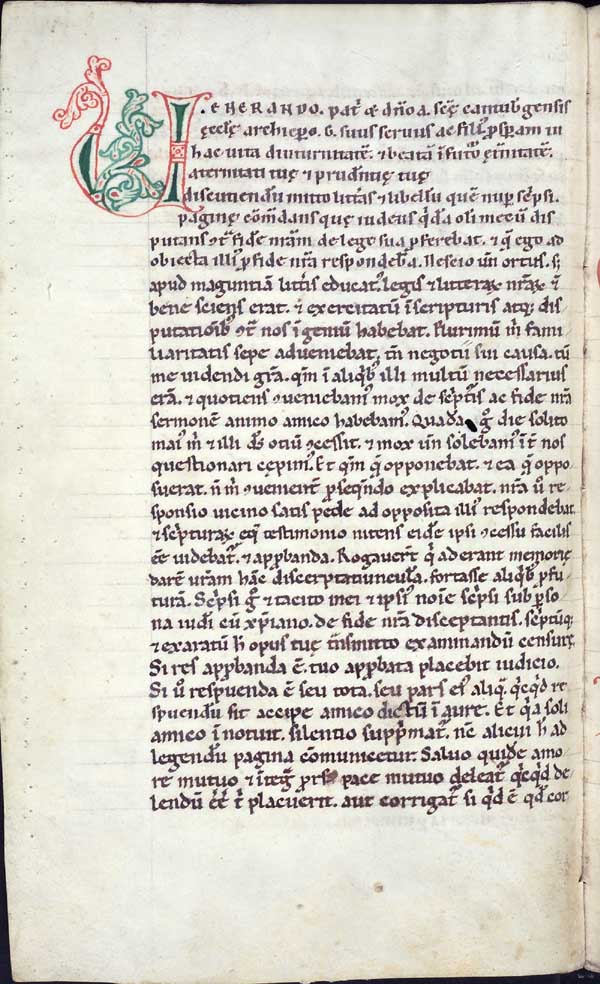 V.ENERANDO. pat̄ & dn̄o a. sc̄ę cantubgensis
ęcclę archiep̄o. G. suus servus ac fili' p̄speram in
hac uita diuturnitatē. & beatā ī fut̄o ęt̄nitatē.
Paternitati tuę & prudentię tuę
discutiendū mitto litt̄as & libellū quē nup̄ sc̄psi.
paginę com̄dans quę iudeus q̄dā olī mecū dis
putans 9t̄ fidē nr̄am de lege sua p̄ferebat. & q̄ ego ad
obiecta illi' p̄ fide nr̄a respondebā. Nescio un̄ ortus. s;
apud maguntiā litt̄is educat'. legis & litterarꝝ nr̄arꝝ &
bene sciens erat. & exercitatū ī scripturis atq; dis
putationib' 9t̄ nos īgeniū habebat. Plurimū m̄ fami
liaritatis sepe adueniebat, tū negotii sui causa. tū
me uidendi gr̄a. qm̄ ī aliq̄b' illi multū necessarius
erā. & quotiens 9ueniebam' mox de sc̄pt̄is ac fide nr̄a
sermonē animo amico habebam'. Quadā g̊ die solito
mai' m̄ & illi ds̄ otiū 9cessit. & mox un̄ solebam' īt̄ nos
questionari cępim'. Et qm̄ q̄ opponebat. & ea q̄ oppo
suerat. n̄ m̄ 9uenient̄ p̄seq̄ndo explicabat. nr̄a ů re
sponsio uicino satis pede ad opposita illi' respondebat
& sc̄pturarꝝ eq̄ testimonio nitens eidē ipsi 9cessu facilis
eē uidebat̄. & app̄banda. Rogauer̄t q̄ aderant memorię
darē ur̄am hāc disceptatiunculā. fortasse aliq̄b' p̄fu
turā. Sc̄psi g̊ & tacito mei & ipsi' noīe sc̄psi sub p̄so
na iudī cū xp̄iano. de fide nr̄a disceptantis. sc̄ptūq;
& exaratū h̄ opus tuę t̄nsmitto examinandū censurę.
Si res app̄banda ē. tuo app̄bata placebit iudicio.
Si ů respuenda ē seu tota. seu pars ei' aliq̄. q̄cq̄d re
spuendū sit accipe amico dictū ī aure. Et q̄a soli
amico īnotuit. silentio supp̄mat̄. nec̄ alicui h̄ ad
legendū pagina cōmunicetur. Saluo quidē amo
re mutuo & īteḡ prs' pace mutuo deleat̄ q̄cq̄d de
lendū ēē t̄ placuerit. aut corrigat̄ si q̄d ē qd̄ cor